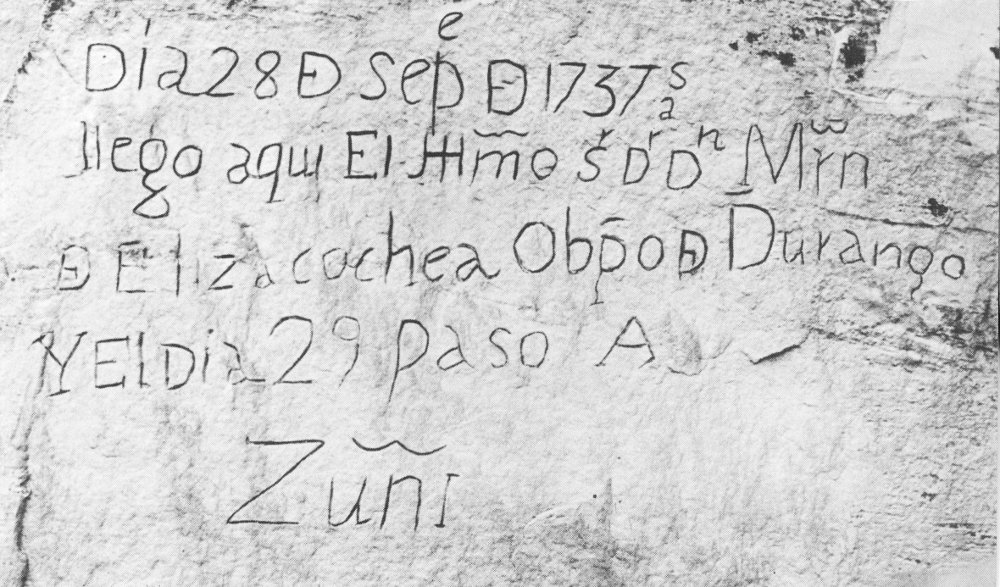 Dia 28 Ð Sepe Ð 1737 as
llego aqui El Illmõ Sr Dr Dn Mr̃n
Ð Elizacochea Obp̄o Ð Durango
Y El Dia 29 paso A
Zuñi